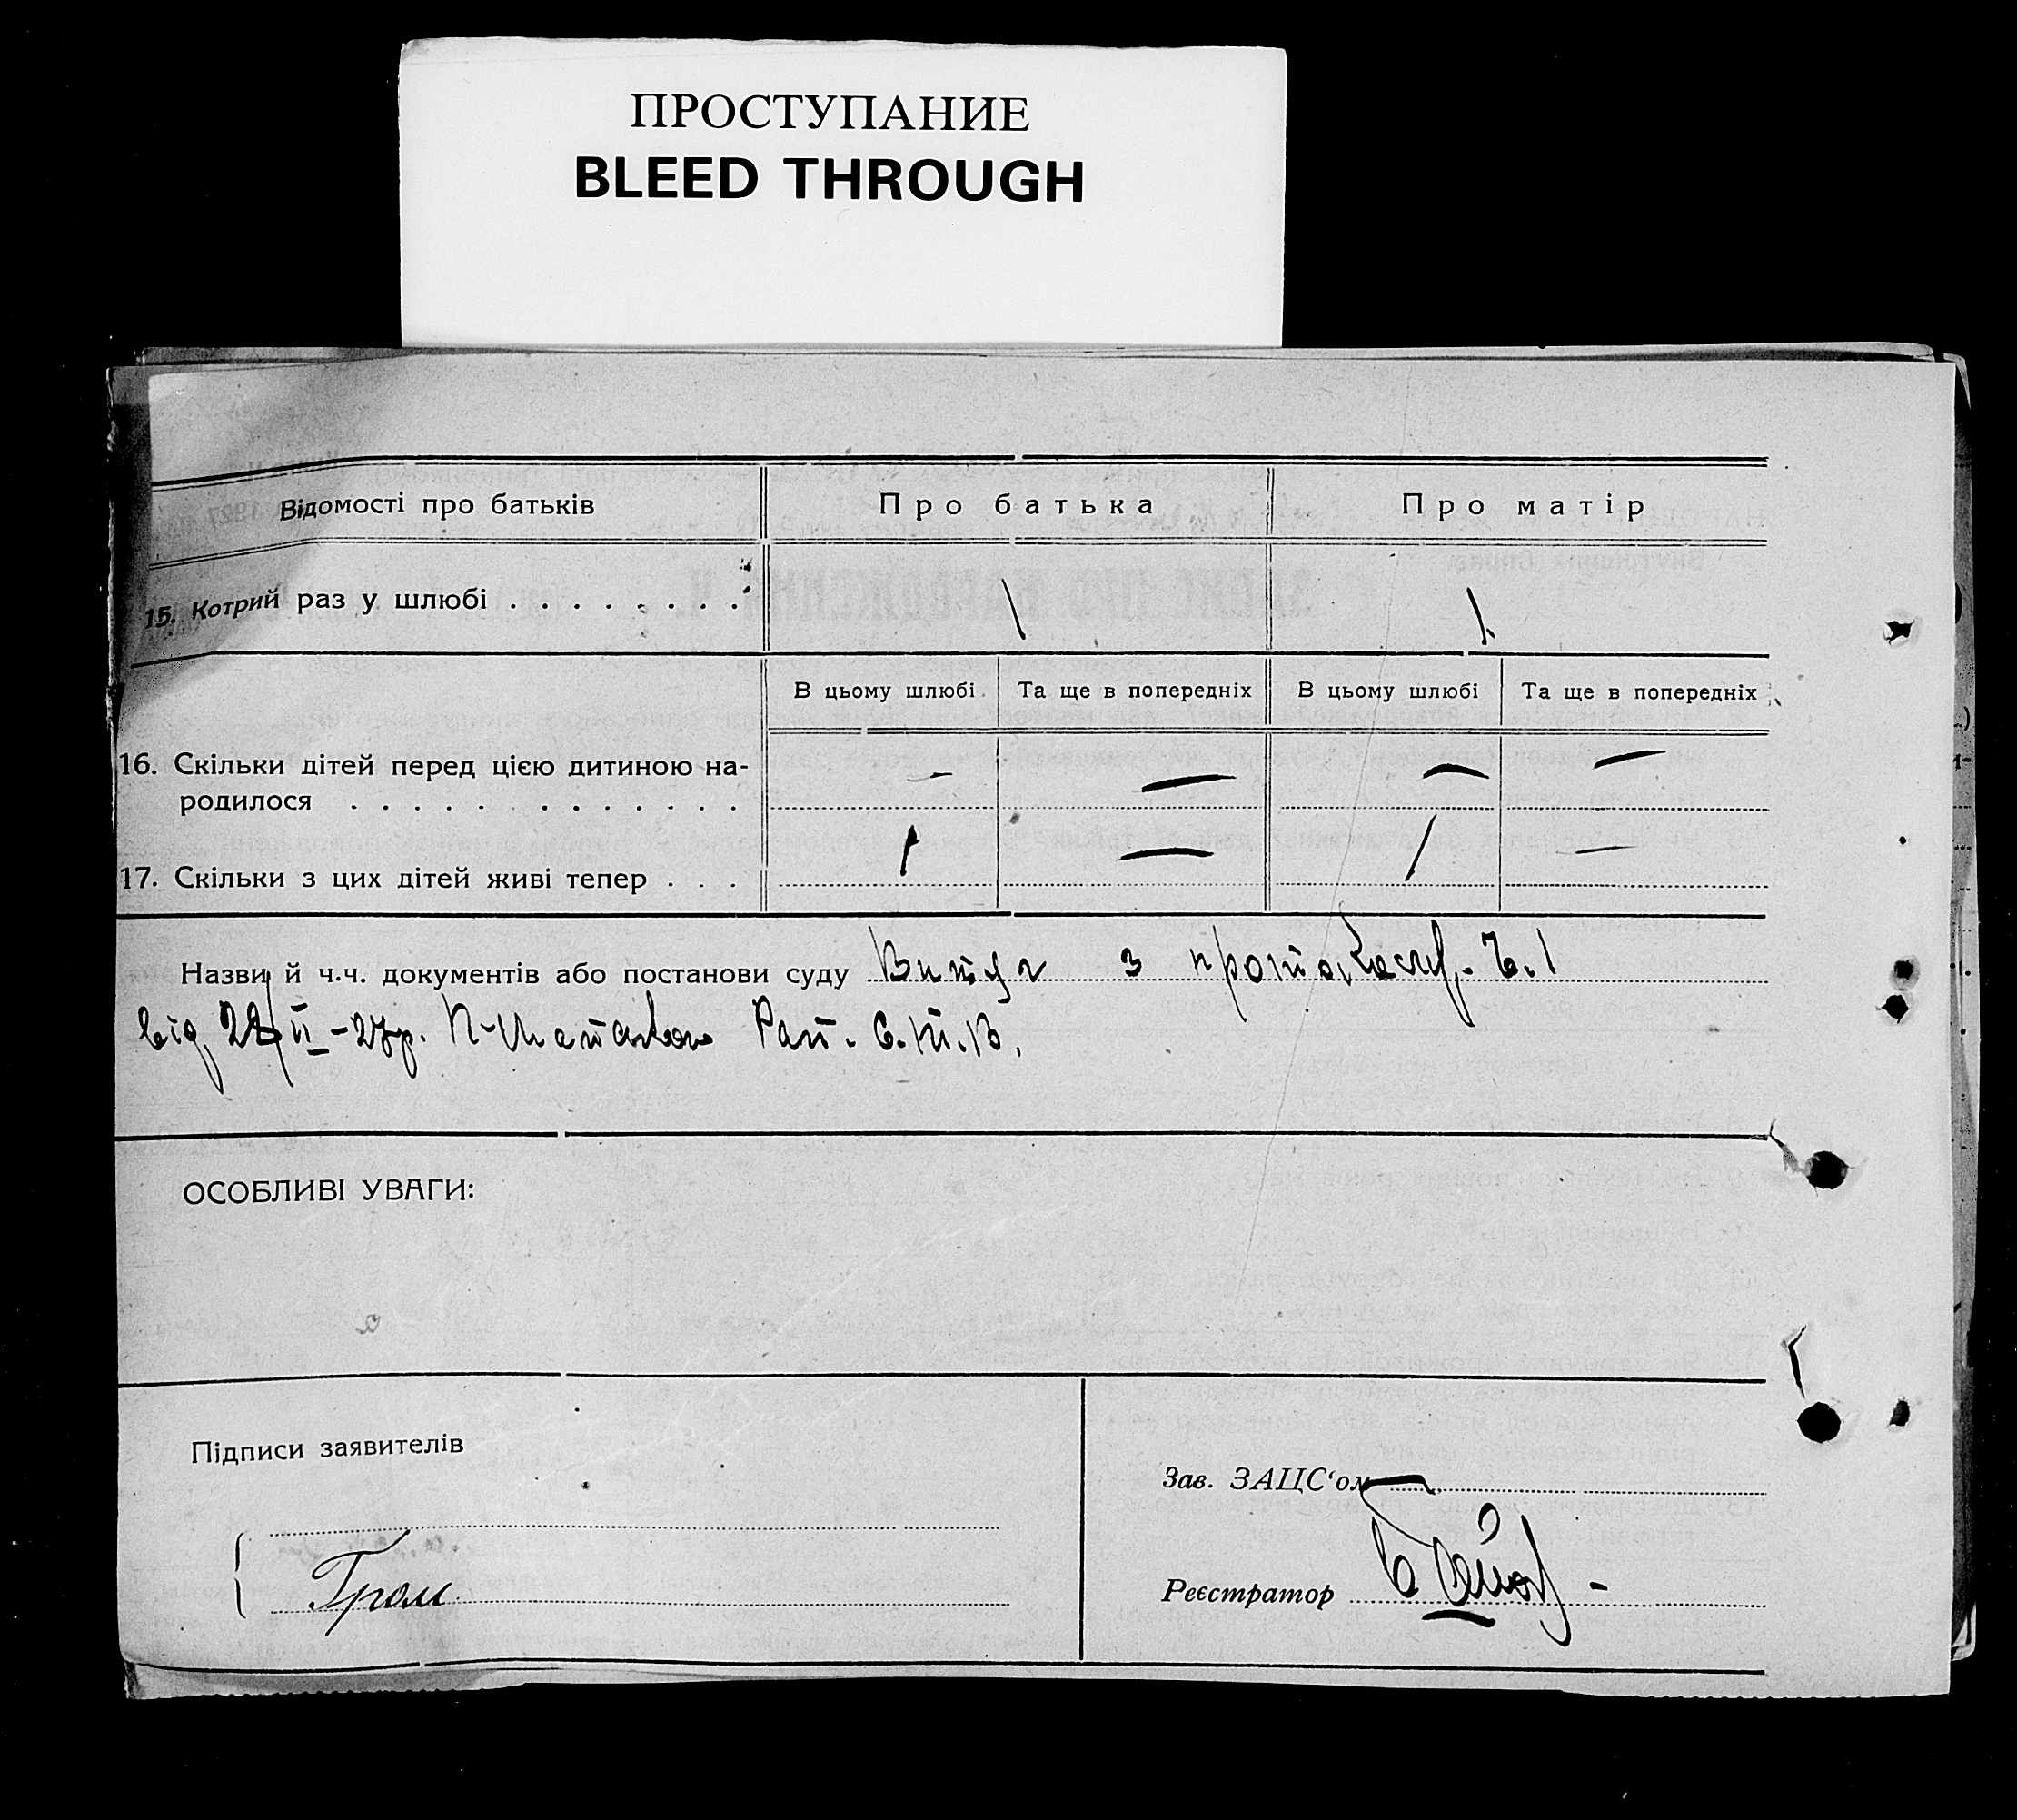 ПРОСТУПАНИЕ
BLEED THROUGH
Відомості про батьків Про батька Про матір
15. Котрий раз у шлюбі . . . . . . . . 1 1.
В цьому шлюбі Та ще в попередніх В цьому шлюбі Та ще в попередніх
16. Скільки дітей перед цією дитиною на-
родилося . . . . . . . . . . . . . — — — —
17. Скільки з цих дітей живі тепер . . . 1 — 1 —
Назви й ч.ч. документів або постанови суду Витяг з протоколу Ч. 1
від 28/II – 27р.
ОСОБЛИВІ УВАГИ:
Підписи заявителів
Зав. ЗАЦС‘ом
Гром
Реєстратор